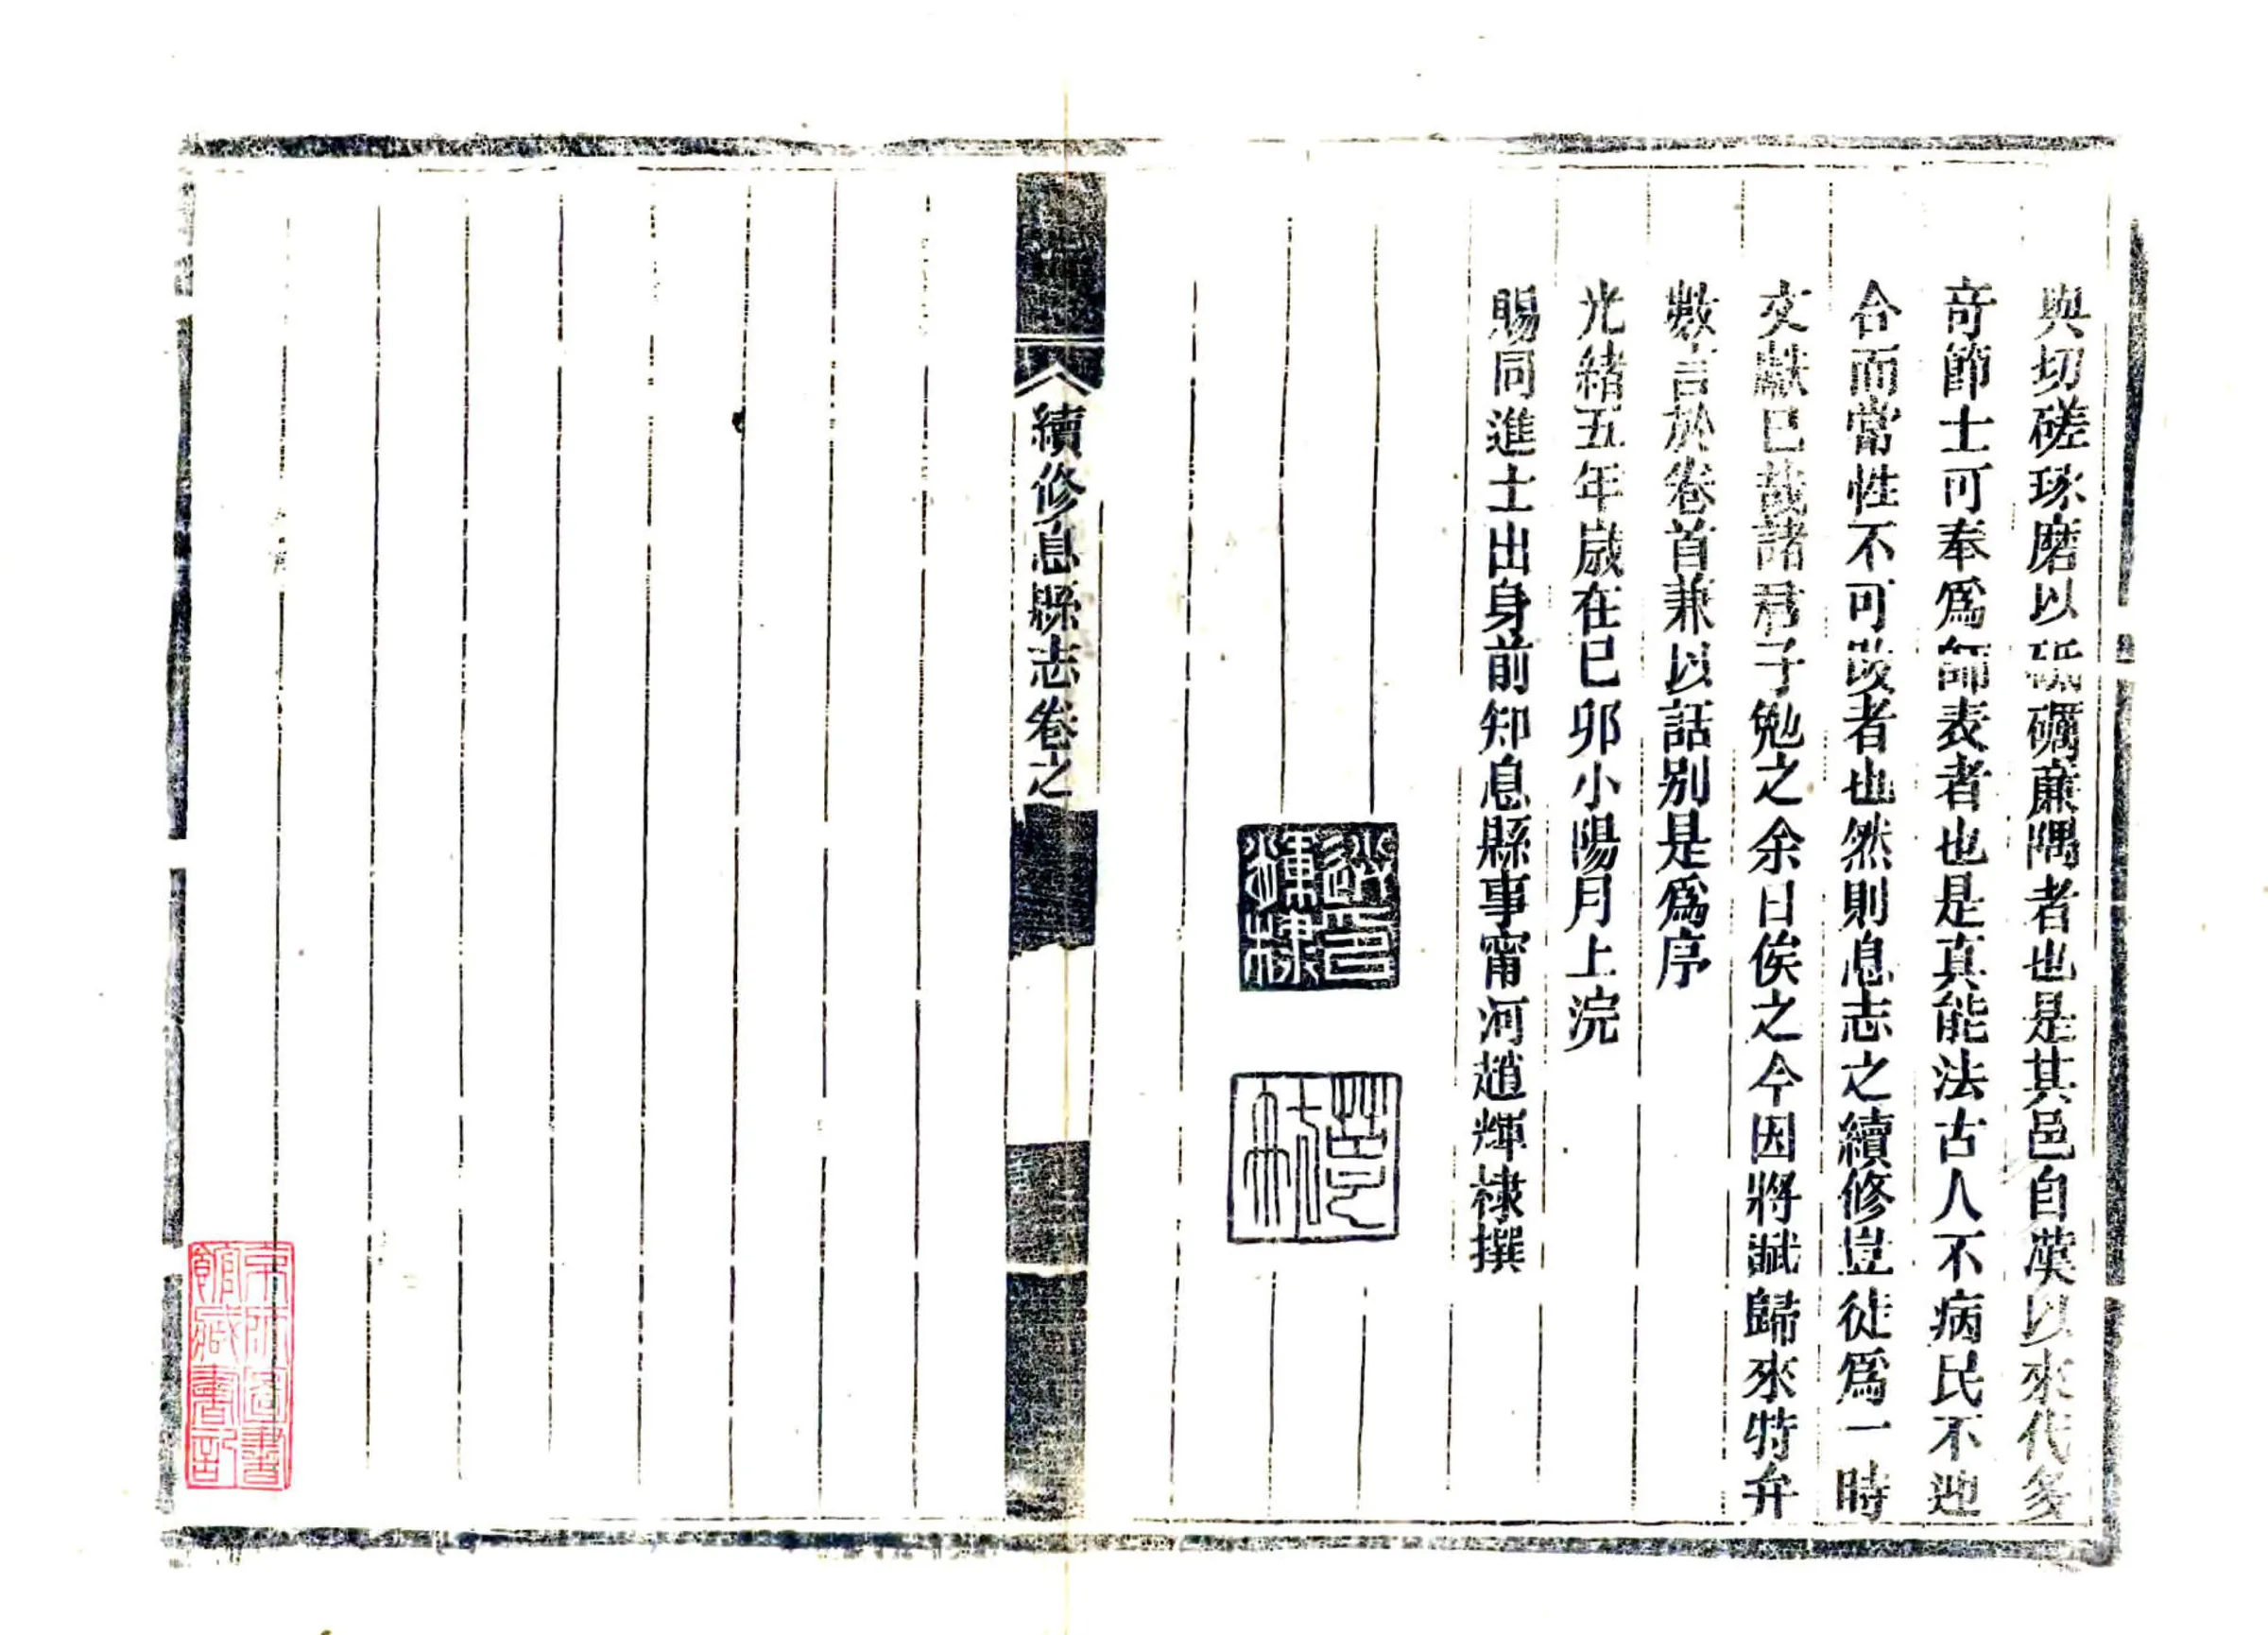 與切磋琢磨以砥礪廉隅者也是其邑自漢以來代多
奇節士可奉爲師表者也是真能法古人不病民不迎
合而當性不可改者也然則息志之續修豈徒爲一時
文獻已哉諸君子勉之余日俟之今因將賦歸來特弁
數言於卷首兼以話别是爲序
光緒五年歲在已卯小陽月上浣
賜同進士出身前知息縣事甯河趙輝棣撰
趙印輝棣
續修息縣志卷之
京師圖書館藏書記